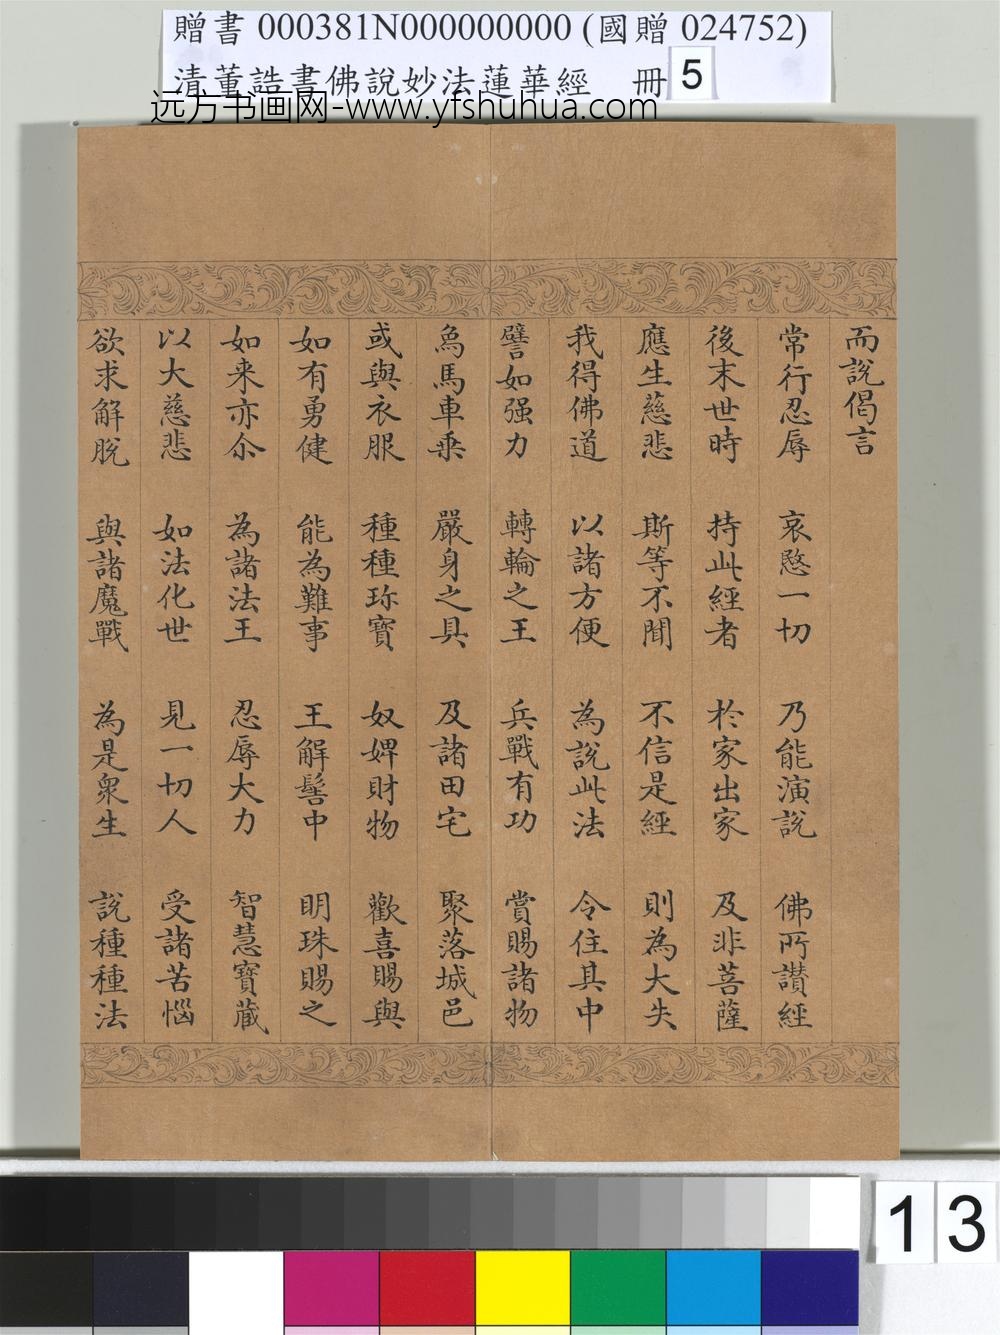 贈書 000381N000000000 (國贈 024752)
清董誥書佛說妙法蓮華經 冊 5
远方书画网-www.yfshuhua.com
而說偈言
常行忍辱 哀愍一切 乃能演說 佛所讃經
後末世時 持此經者 於家出家 及非菩薩
應生慈悲 斯等不聞 不信是經 則為大失
我得佛道 以諸方便 為說此法 令住其中
譬如强力 轉輪之王 兵戰有功 賞賜諸物
烏馬車乗 嚴身之具 及諸田宅 聚落城邑
或與衣服 種種珎寶 奴婢財物 歡喜賜與
如有勇健 能為難事 王解髻中 明珠賜之
如来亦尒 為諸法王 忍辱大力 智慧寶蔵
以大慈悲 如法化世 見一切人 受諸苦惱
欲求解脫 與諸魔戰 為是衆生 說種種法
13